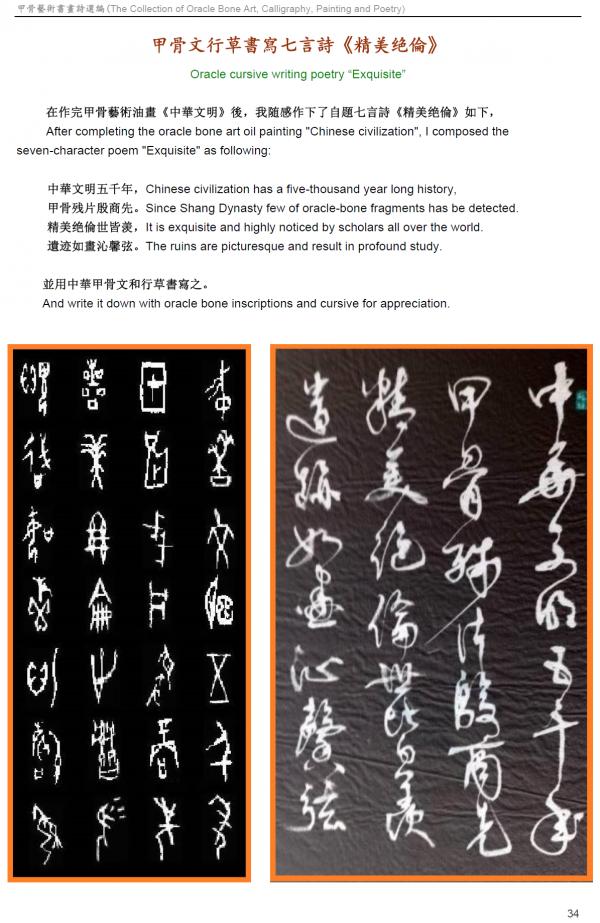 甲骨藝術書畫詩選編(The Collection of Oracle Bone Art, Calligraphy, Painting and Poetry)
甲骨文行草書寫七言詩《精美绝倫》
Oracle cursive writing poetry “Exquisite”
在作完甲骨藝術油畫《中華文明》後，我随感作下了自題七言詩《精美绝倫》如下，
After completing the oracle bone art oil painting "Chinese civilization", I composed the
seven-character poem "Exquisite" as following:
中華文明五千年，Chinese civilization has a five-thousand year long history,
甲骨残片殷商先。Since Shang Dynasty few of oracle-bone fragments has be detected.
精美绝倫世皆羡，It is exquisite and highly noticed by scholars all over the world.
遺迹如畫沁馨弦。The ruins are picturesque and result in profound study.
並用中華甲骨文和行草書寫之。
And write it down with oracle bone inscriptions and cursive for appreciation.
中華文明五千年
甲骨残片殷商先
精美绝倫世皆羡
遺迹如畫沁馨弦
34